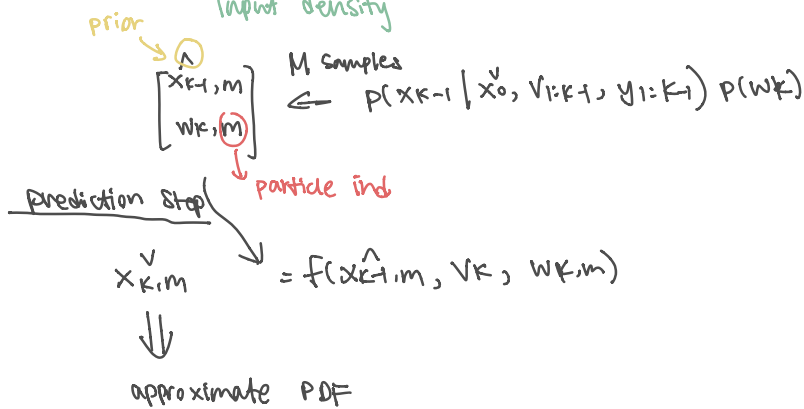 input density
prior
M samples
[x̂k-1,m
wk,m] ⇐ p(xk-1 | x̌0, v1:k-1, y1:k-1) p(wk)
particle ind
prediction step
x̌k,m = f(x̂k-1,m, vk, wk,m)
approximate PDF